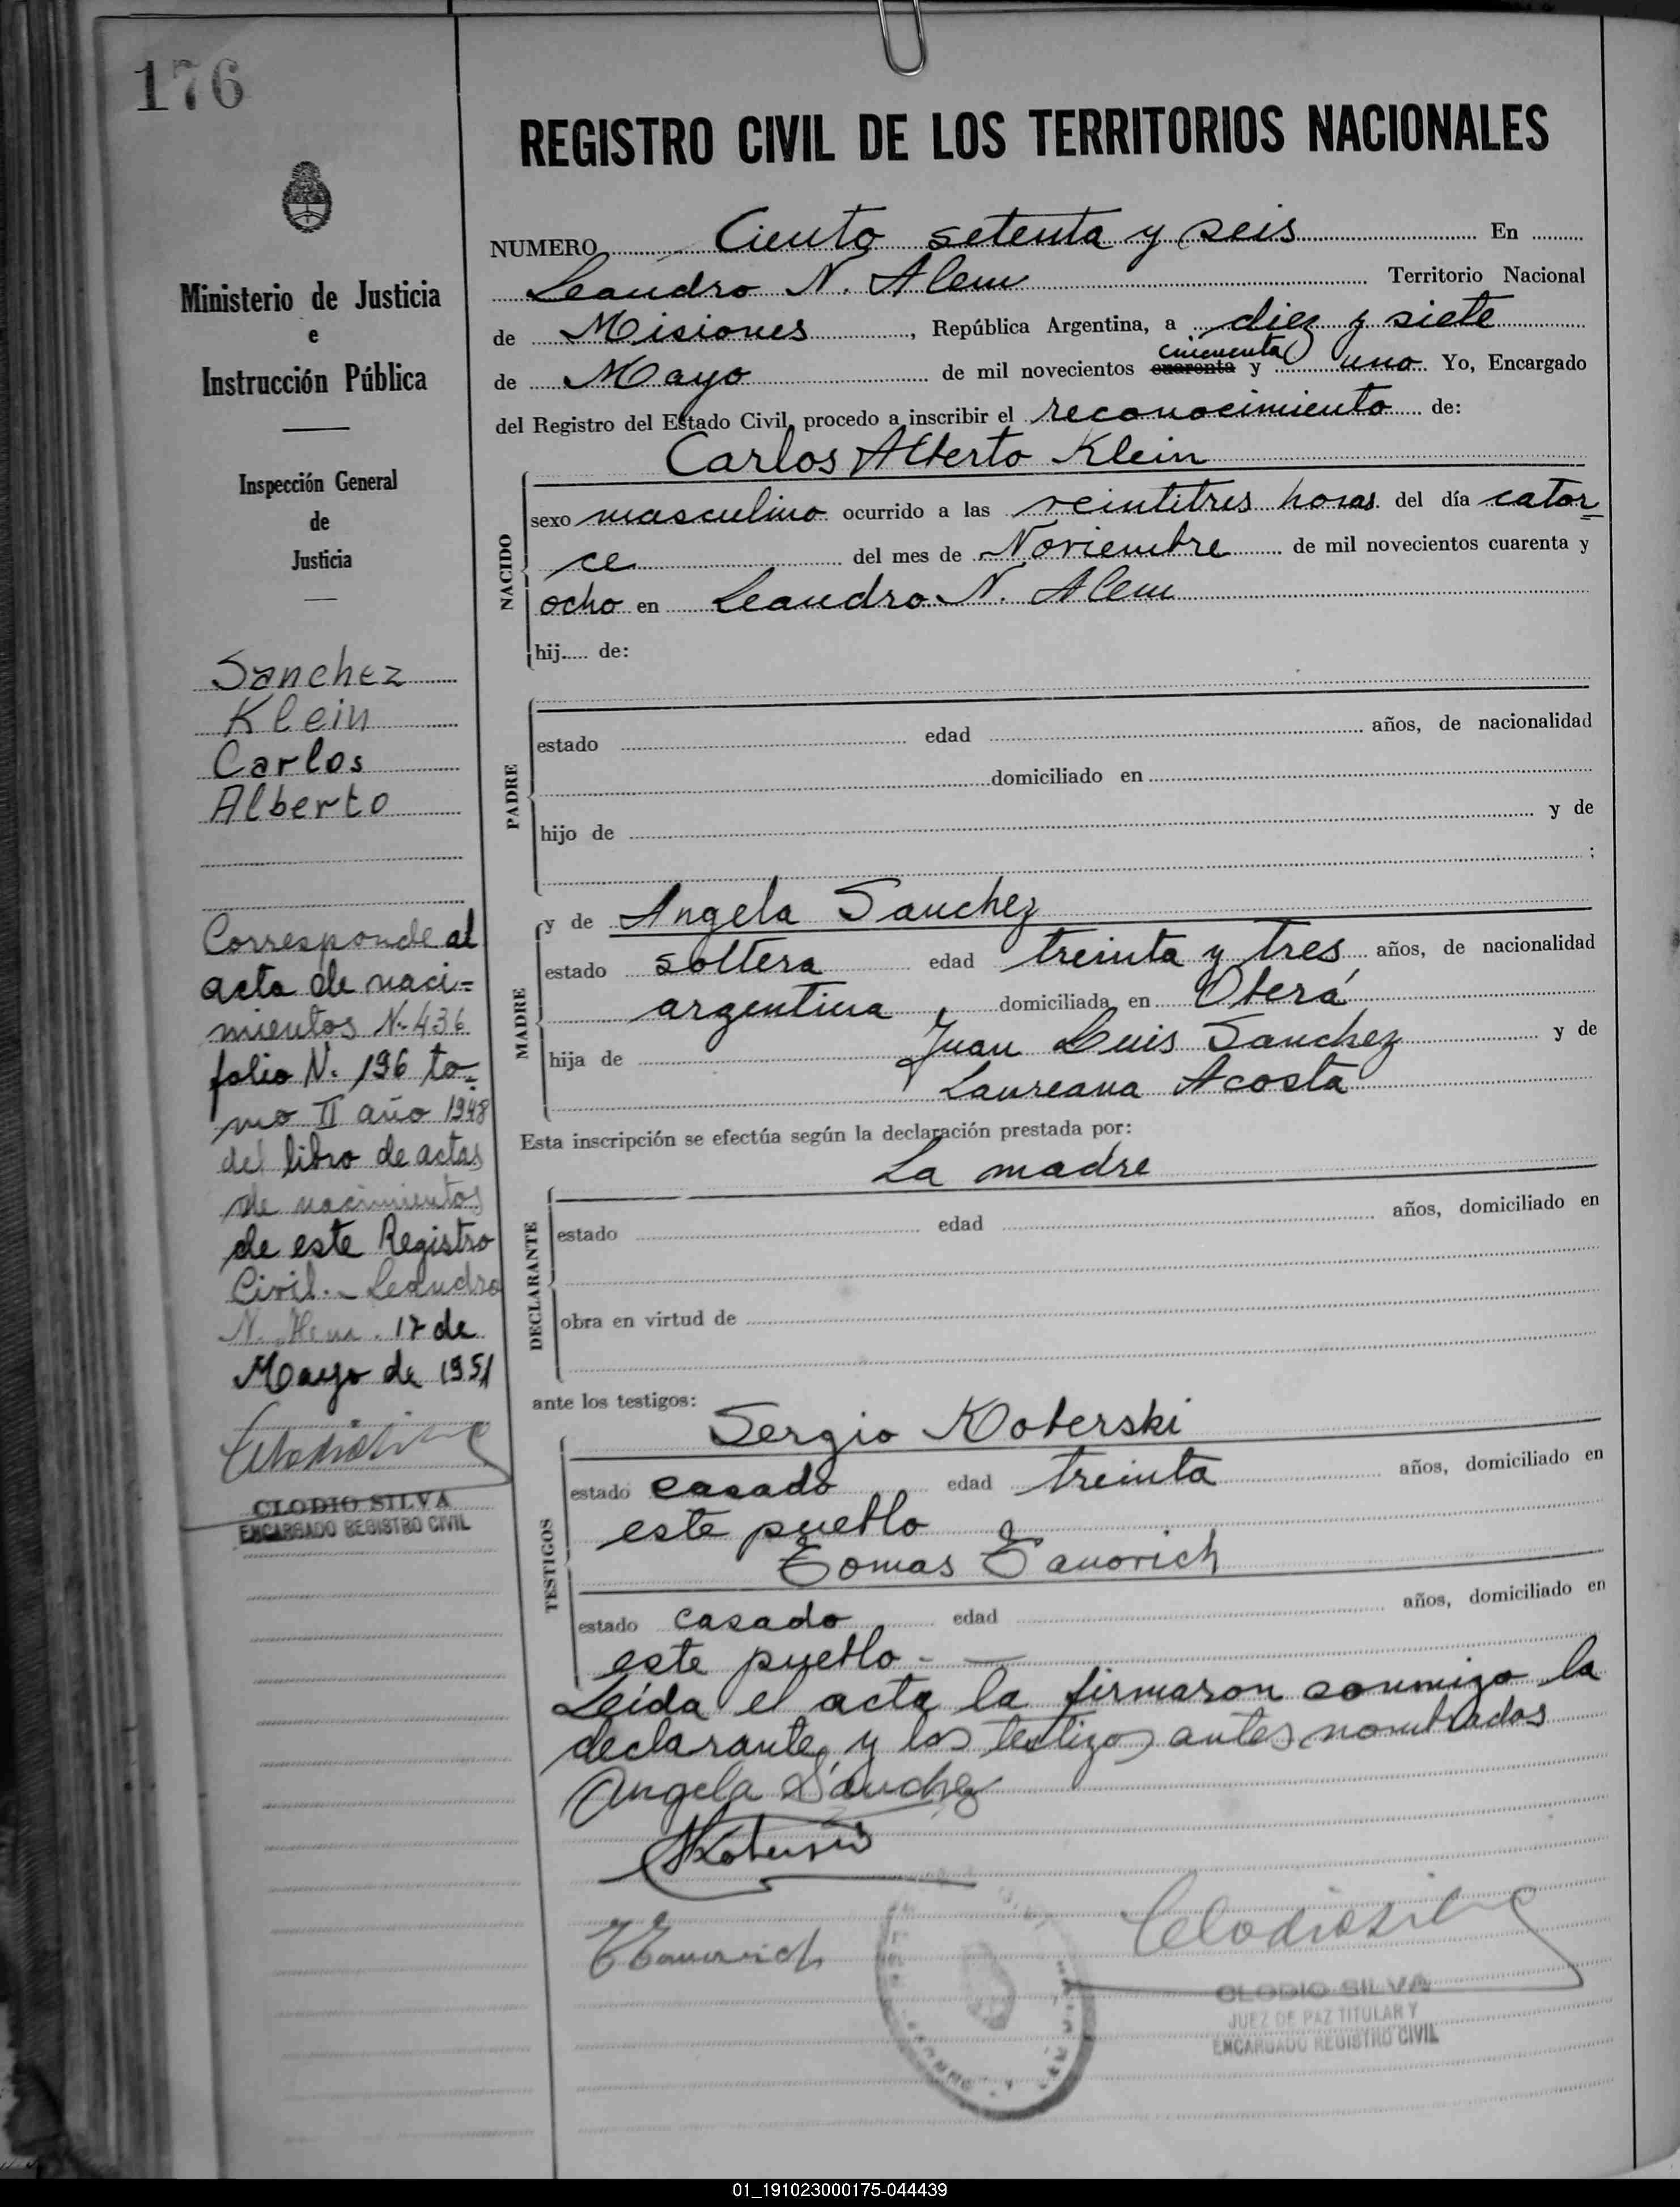 176
REGISTRO CIVIL DE LOS TERRITORIOS NACIONALES
Ministerio de Justicia
e
Instrucción Pública
Inspección General
de
Justicia
Sanchez
Klein
Carlos
Alberto
Corresponde al
acta de naci=
mientos N. 436
folio N. 196 to=
mo II año 1948
del libro de actas
de nacimientos
de este Registro
Civil. - Leandro
N. Alem. 17 de
Mayo de 1951
CLODIO SILVA
ENCARGADO REGISTRO CIVIL
NUMERO Ciento setenta y seis En
Leandro N. Alem Territorio Nacional
de Misiones, República Argentina, a diez y siete
cincuenta
de Mayo de mil novecientos cuarenta y uno Yo, Encargado
del Registro del Estado Civil, procedo a inscribir el reconocimiento de:
Carlos Alberto Klein
NACIDO
sexo masculino ocurrido a las veintitres horas del día cator-
ce del mes de Noviembre de mil novecientos cuarenta y
ocho en Leandro N. Alem
hij..... de:
PADRE
estado edad años, de nacionalidad
domiciliado en
hijo de y de
;
MADRE
y de Angela Sanchez
estado soltera edad treinta y tres años, de nacionalidad
argentina domiciliada en Oberá
hija de Juan Luis Sanchez y de
Laureana Acosta
Esta inscripción se efectúa según la declaración prestada por:
La madre
DECLARANTE
estado edad años, domiciliado en
obra en virtud de
ante los testigos:
TESTIGOS
Sergio Koberski
estado casado edad treinta años, domiciliado en
este pueblo
Tomas Tanovich
estado casado edad años, domiciliado en
este pueblo - —
Leída el acta la firmaron conmigo la
declarante, y los testigos antes nombrados
Angela Sanchez
CLODIO SILVA
JUEZ DE PAZ TITULAR Y
ENCARGADO REGISTRO CIVIL
01_191023000175-044439